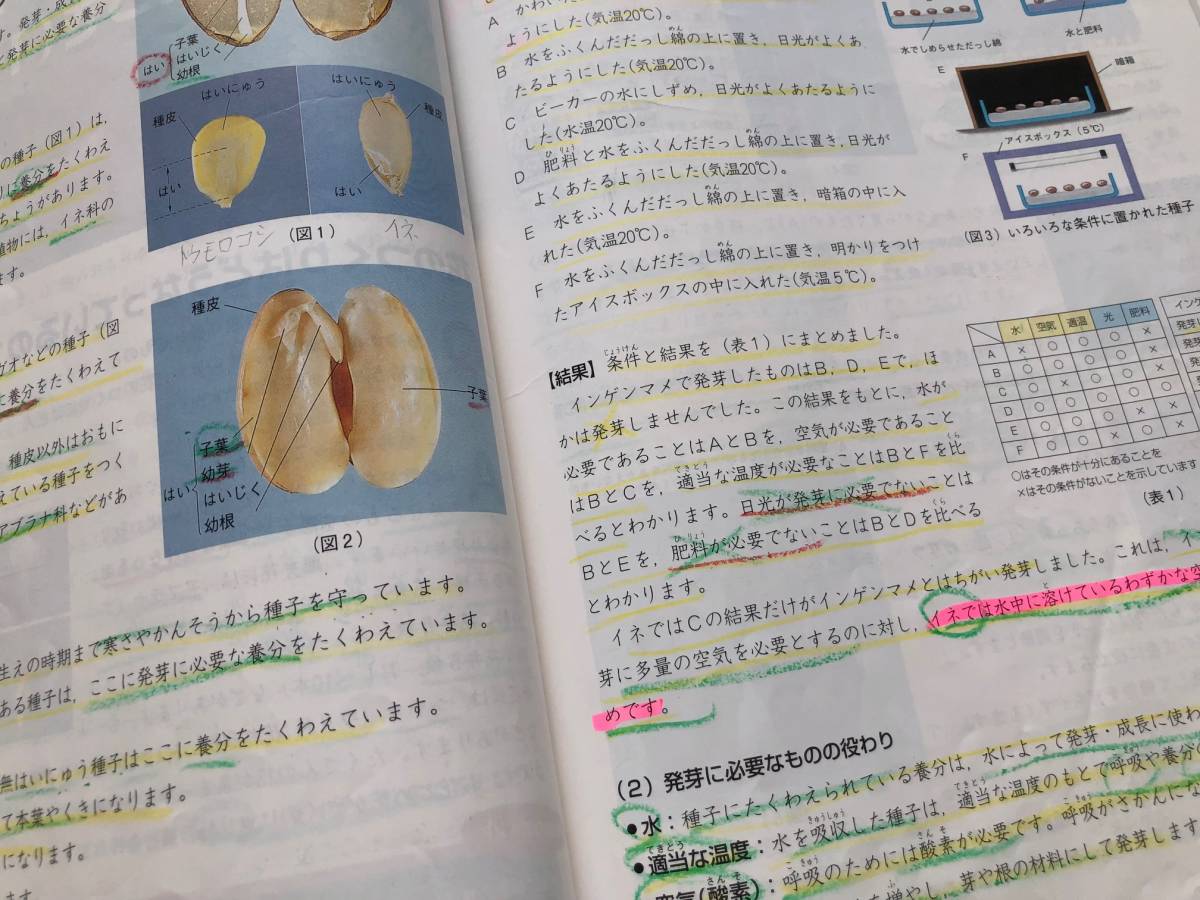 と発芽に必要な養分
子葉
はいじく
幼根
はい
はいにゅう
種皮
はい
はいにゅう
種皮
はい
トウモロコシ
(図1)
イネ
の種子(図1)は,
養分をたくわえ
ちょうがあります。
植物には,イネ科の
ます。
種皮
子葉
子葉
幼芽
はいじく
幼根
はい
(図2)
ガオなどの種子(図
に養分をたくわえて
種皮以外はおもに
えている種子をつく
アブラナ科などがあ
生えの時期まで寒さやかんそうから種子を守っています。
ある種子は,ここに発芽に必要な養分をたくわえています。
無はいにゅう種子はここに養分をたくわえています。
て本葉やくきになります。
になります。
ます。
A かわい
ようにした(気温20℃)。
B 水をふくんだだっし綿の上に置き,日光がよくあ
たるようにした(気温20℃)。
C ビーカーの水にしずめ,日光がよくあたるように
した(水温20℃)。
D 肥料と水をふくんだだっし綿の上に置き,日光が
よくあたるようにした(気温20℃)。
E 水をふくんだだっし綿の上に置き,暗箱の中に入
れた(気温20℃)。
F 水をふくんだだっし綿の上に置き,明かりをつけ
たアイスボックスの中に入れた(気温5℃)。
水でしめらせただっし綿
水と肥料
E
暗箱
アイスボックス(5℃)
F
(図3)いろいろな条件に置かれた種子
【結果】条件と結果を(表1)にまとめました。
インゲンマメで発芽したものはB,D,Eで,ほ
かは発芽しませんでした。この結果をもとに,水が
必要であることはAとBを,空気が必要であること
はBとCを,適当な温度が必要なことはBとFを比
べるとわかります。日光が発芽に必要でないことは
BとEを,肥料が必要でないことはBとDを比べる
とわかります。
イネではCの結果だけがインゲンマメとはちがい発芽しました。これは,イ
芽に多量の空気を必要とするのに対し,イネでは水中に溶けているわずかな空
めです。
水 空気 適温 光 肥料
A × ○ ○ ○ ×
B ○ ○ ○ ○ ×
C ○ × ○ ○ ×
D ○ ○ ○ ○ ○
E ○ ○ ○ × ×
F ○ ○ × ○ ×
インゲ
発芽
発芽
発芽
○はその条件が十分にあることを
×はその条件がないことを示しています
(表1)
(2)発芽に必要なものの役わり
●水:種子にたくわえられている養分は,水によって発芽・成長に使わ
●適当な温度:水を吸収した種子は,適当な温度のもとで呼吸や養分の
空気(酸素):呼吸のためには酸素が必要です。呼吸がさかんにな
増やし,芽や根の材料にして発芽します